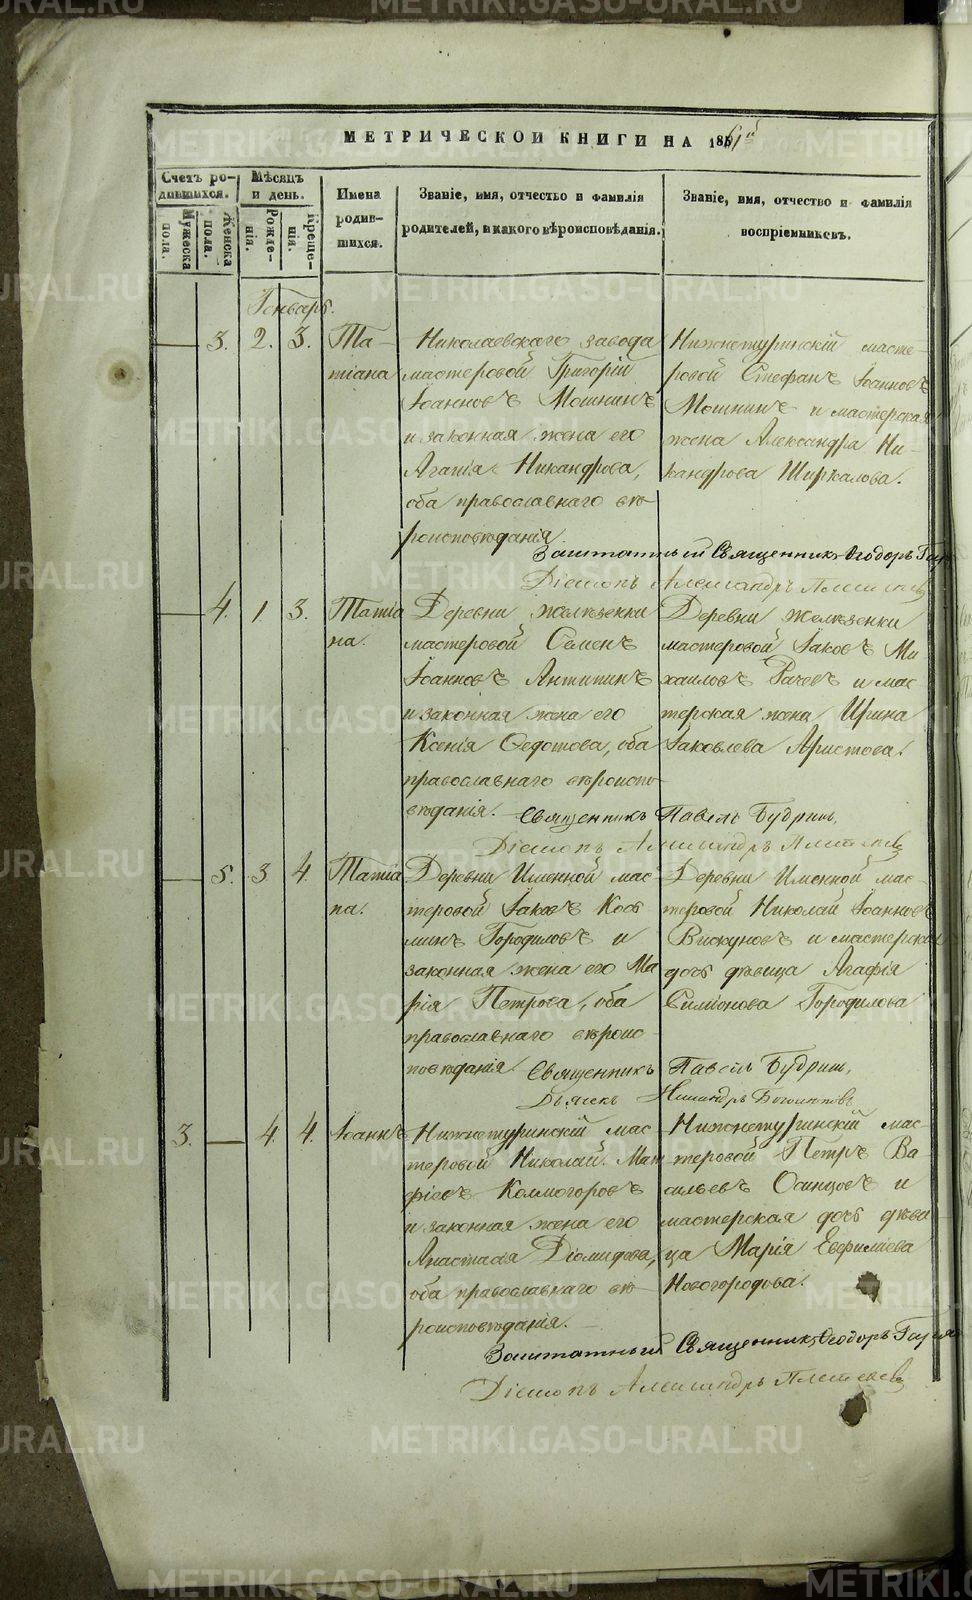 МЕТРИЧЕСКОЙ КНИГИ НА 1861й
Счетъ родившихся.
Мѣсяцъ и день.
Имена родившихся.
Званіе, имя, отчество и фамилія родителей, и какого вѣроисповѣданія.
Званіе, имя, отчество и фамилія воспріемниковъ.
Мужеска пола.
Женска пола.
Рожденія.
Крещенія.
Генварь.
3. 2. 3.
Татіана
Николаевскаго завода
мастеровой Григорій
Іоанновъ Мошнинъ
и законная жена его
Агапія Никандрова,
оба православнаго вѣ-
роисповѣданія.
Нижнетуринскій масте-
ровой Стефанъ Іоанновъ
Мошнинъ и мастерская
жена Александра Ни-
кандрова Ширкалова.
Заштатный Священникъ Ѳеодоръ
Діаконъ Александръ
4. 1 3.
Татіа
на.
Деревни Желѣзенки
мастеровой Семенъ
Іоанновъ Антипинъ
и законная жена его
Ксенія Ѳедотова, оба
православнаго вѣроиспо-
вѣданія.
Деревни Желѣзенки
мастеровой Іаковъ Ми
хаиловъ Рачевъ и мас-
терская жена Ирина
Іаковлева Аристова.
Священникъ Павелъ Будрин.
Діаконъ Александръ
5. 3 4.
Татіа
на.
Деревни Именной мас-
теровой Іаковъ Козь
минъ Городиловъ и
законная жена его Ма
рія Петрова, оба
православнаго вѣроис-
повѣданія.
Деревни Именной мас-
теровой Николай Іоанновъ
Вискуновъ и мастерская
дочь дѣвица Агафія
Симіонова Городилова
Священникъ Павелъ Будрин,
Дьячекъ
3. 4. 4.
Іоаннъ
Нижнетуринскій мас-
теровой Николай Мат
фіевъ Колмогоровъ
и законная жена его
Анастасія Діомидова,
оба православнаго вѣ-
роисповѣданія.
Нижнетуринскій мас-
теровой Петръ Ва-
сильевъ Осинцовъ и
мастерская дочь дѣви
ца Марія Евфиміева
Новогородова.
Заштатный Священникъ Ѳеодоръ
Діаконъ Александръ
METRIKI.GASO-URAL.RU